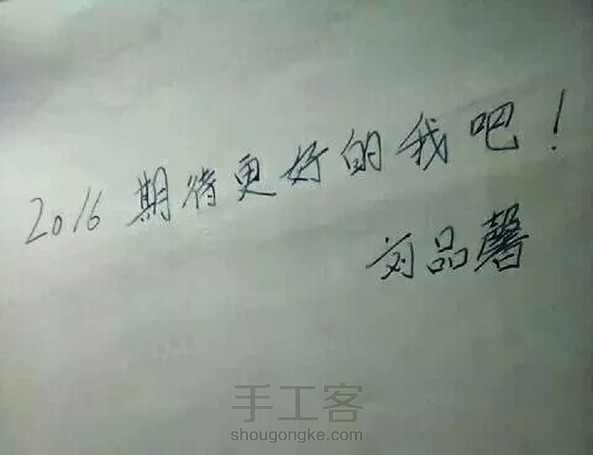 2016 期待更好的我吧！
刘品馨
手工客
shougongke.com